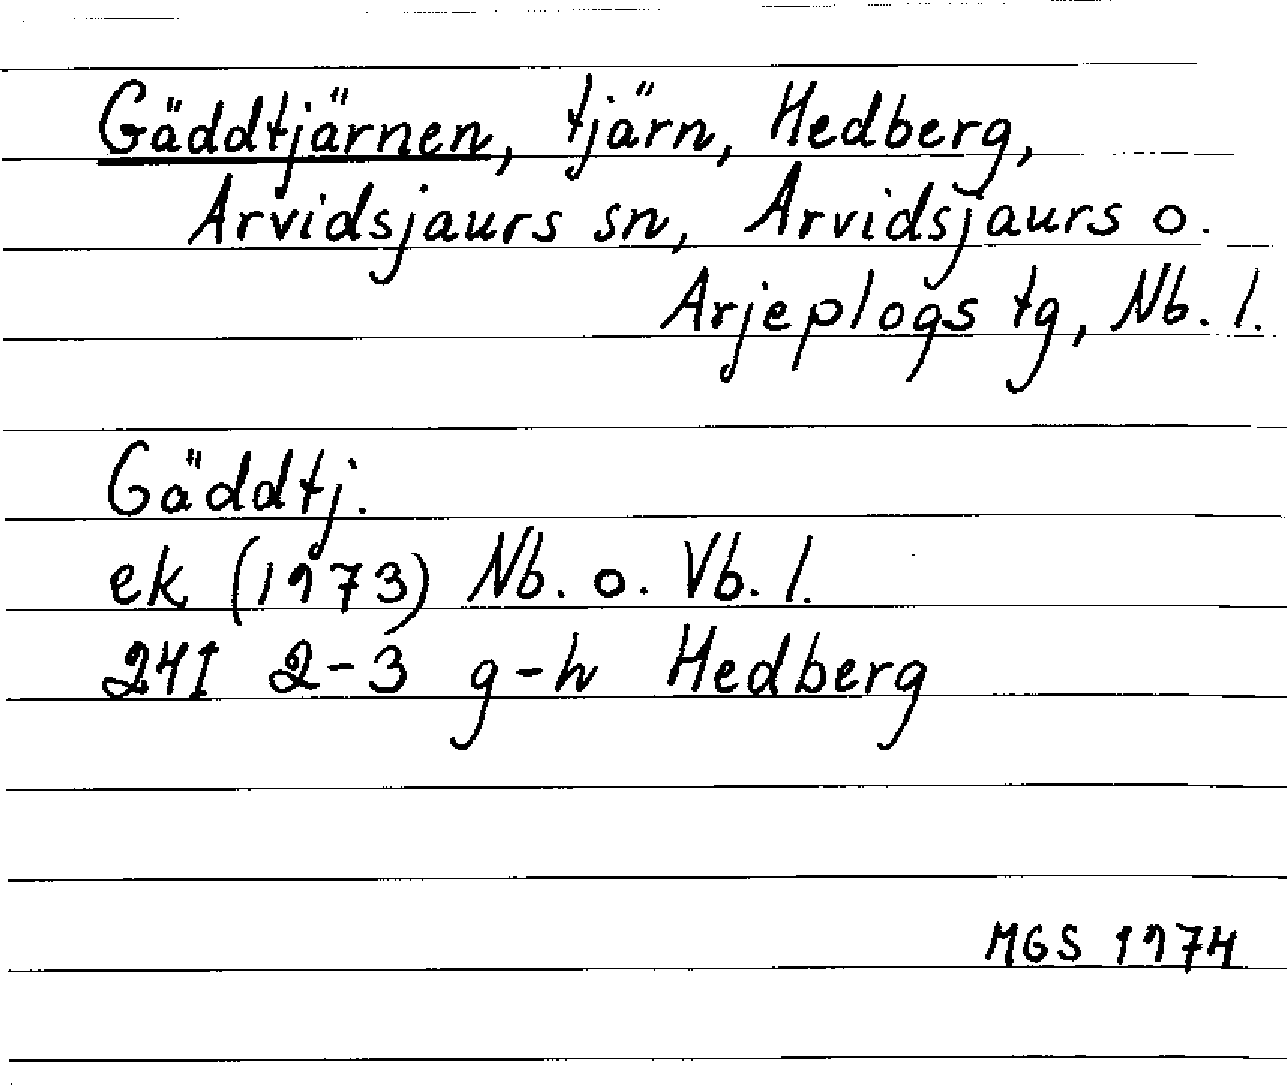 Gäddtjärnen, tjärn, Hedberg,
Arvidsjaurs sn, Arvidsjaurs o.
Arjeplogs tg, Nb. l.
Gäddtj.
ek (1973) Nb. o. Vb. l.
24I 2-3 g-h Hedberg
MGS 1974